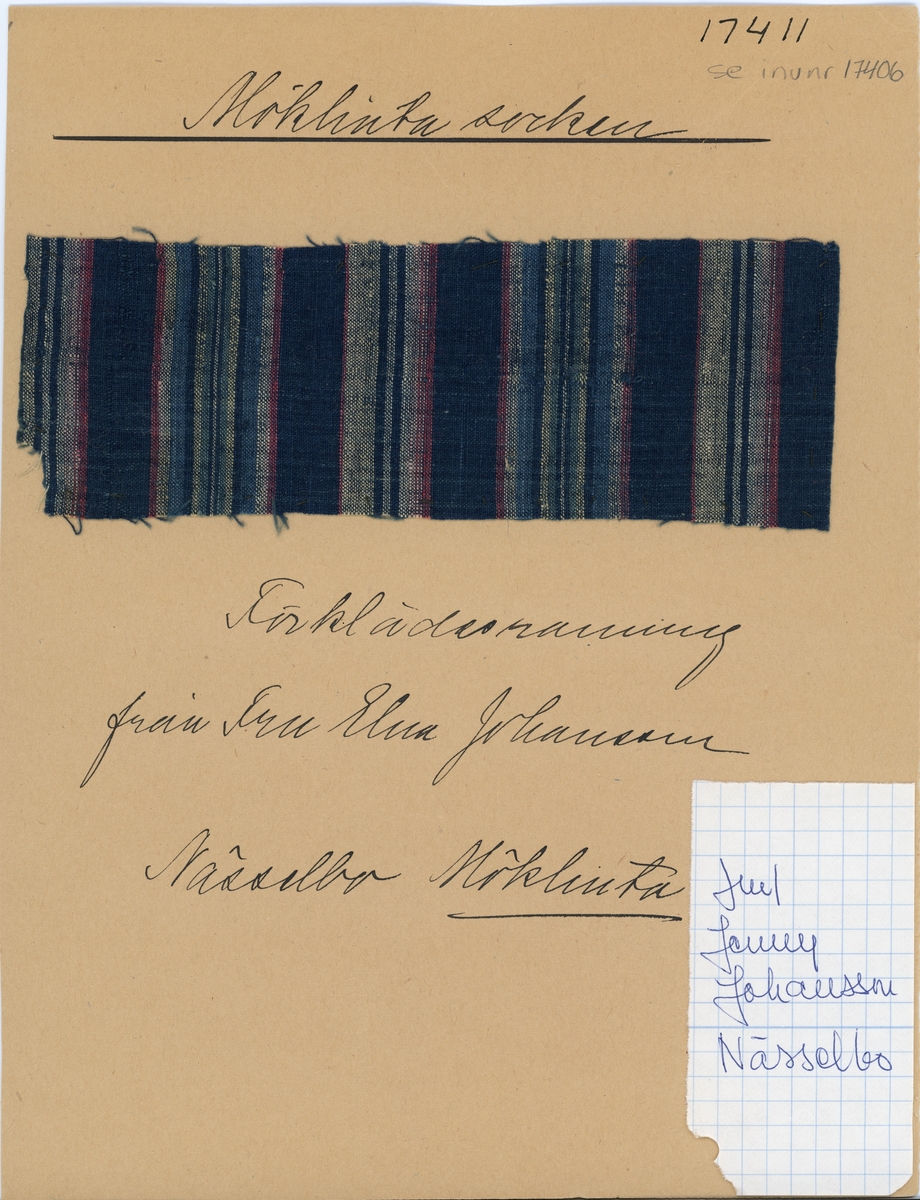 17411
se invnr 17406
Möklinta socken
Förklädesvanning
från Fru Elna Johansson
Nässelbo Möklinta
Jenny
Johansson
Nässelbo